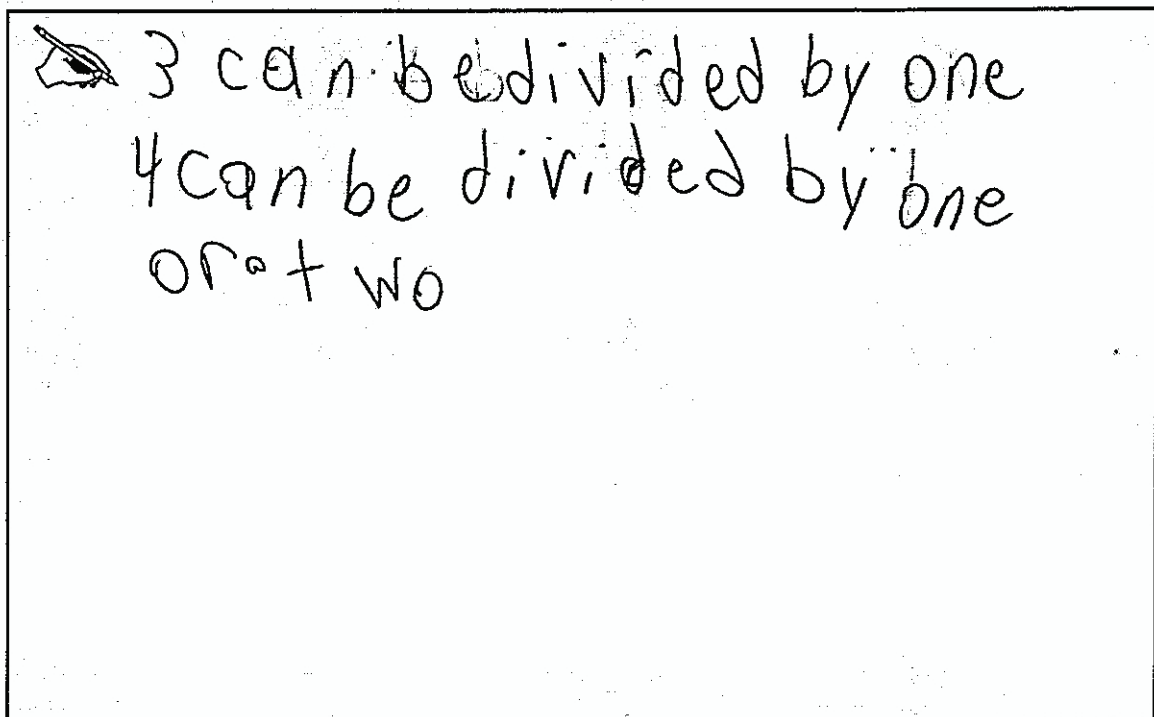 3 can be divided by one
4 can be divided by one
or two